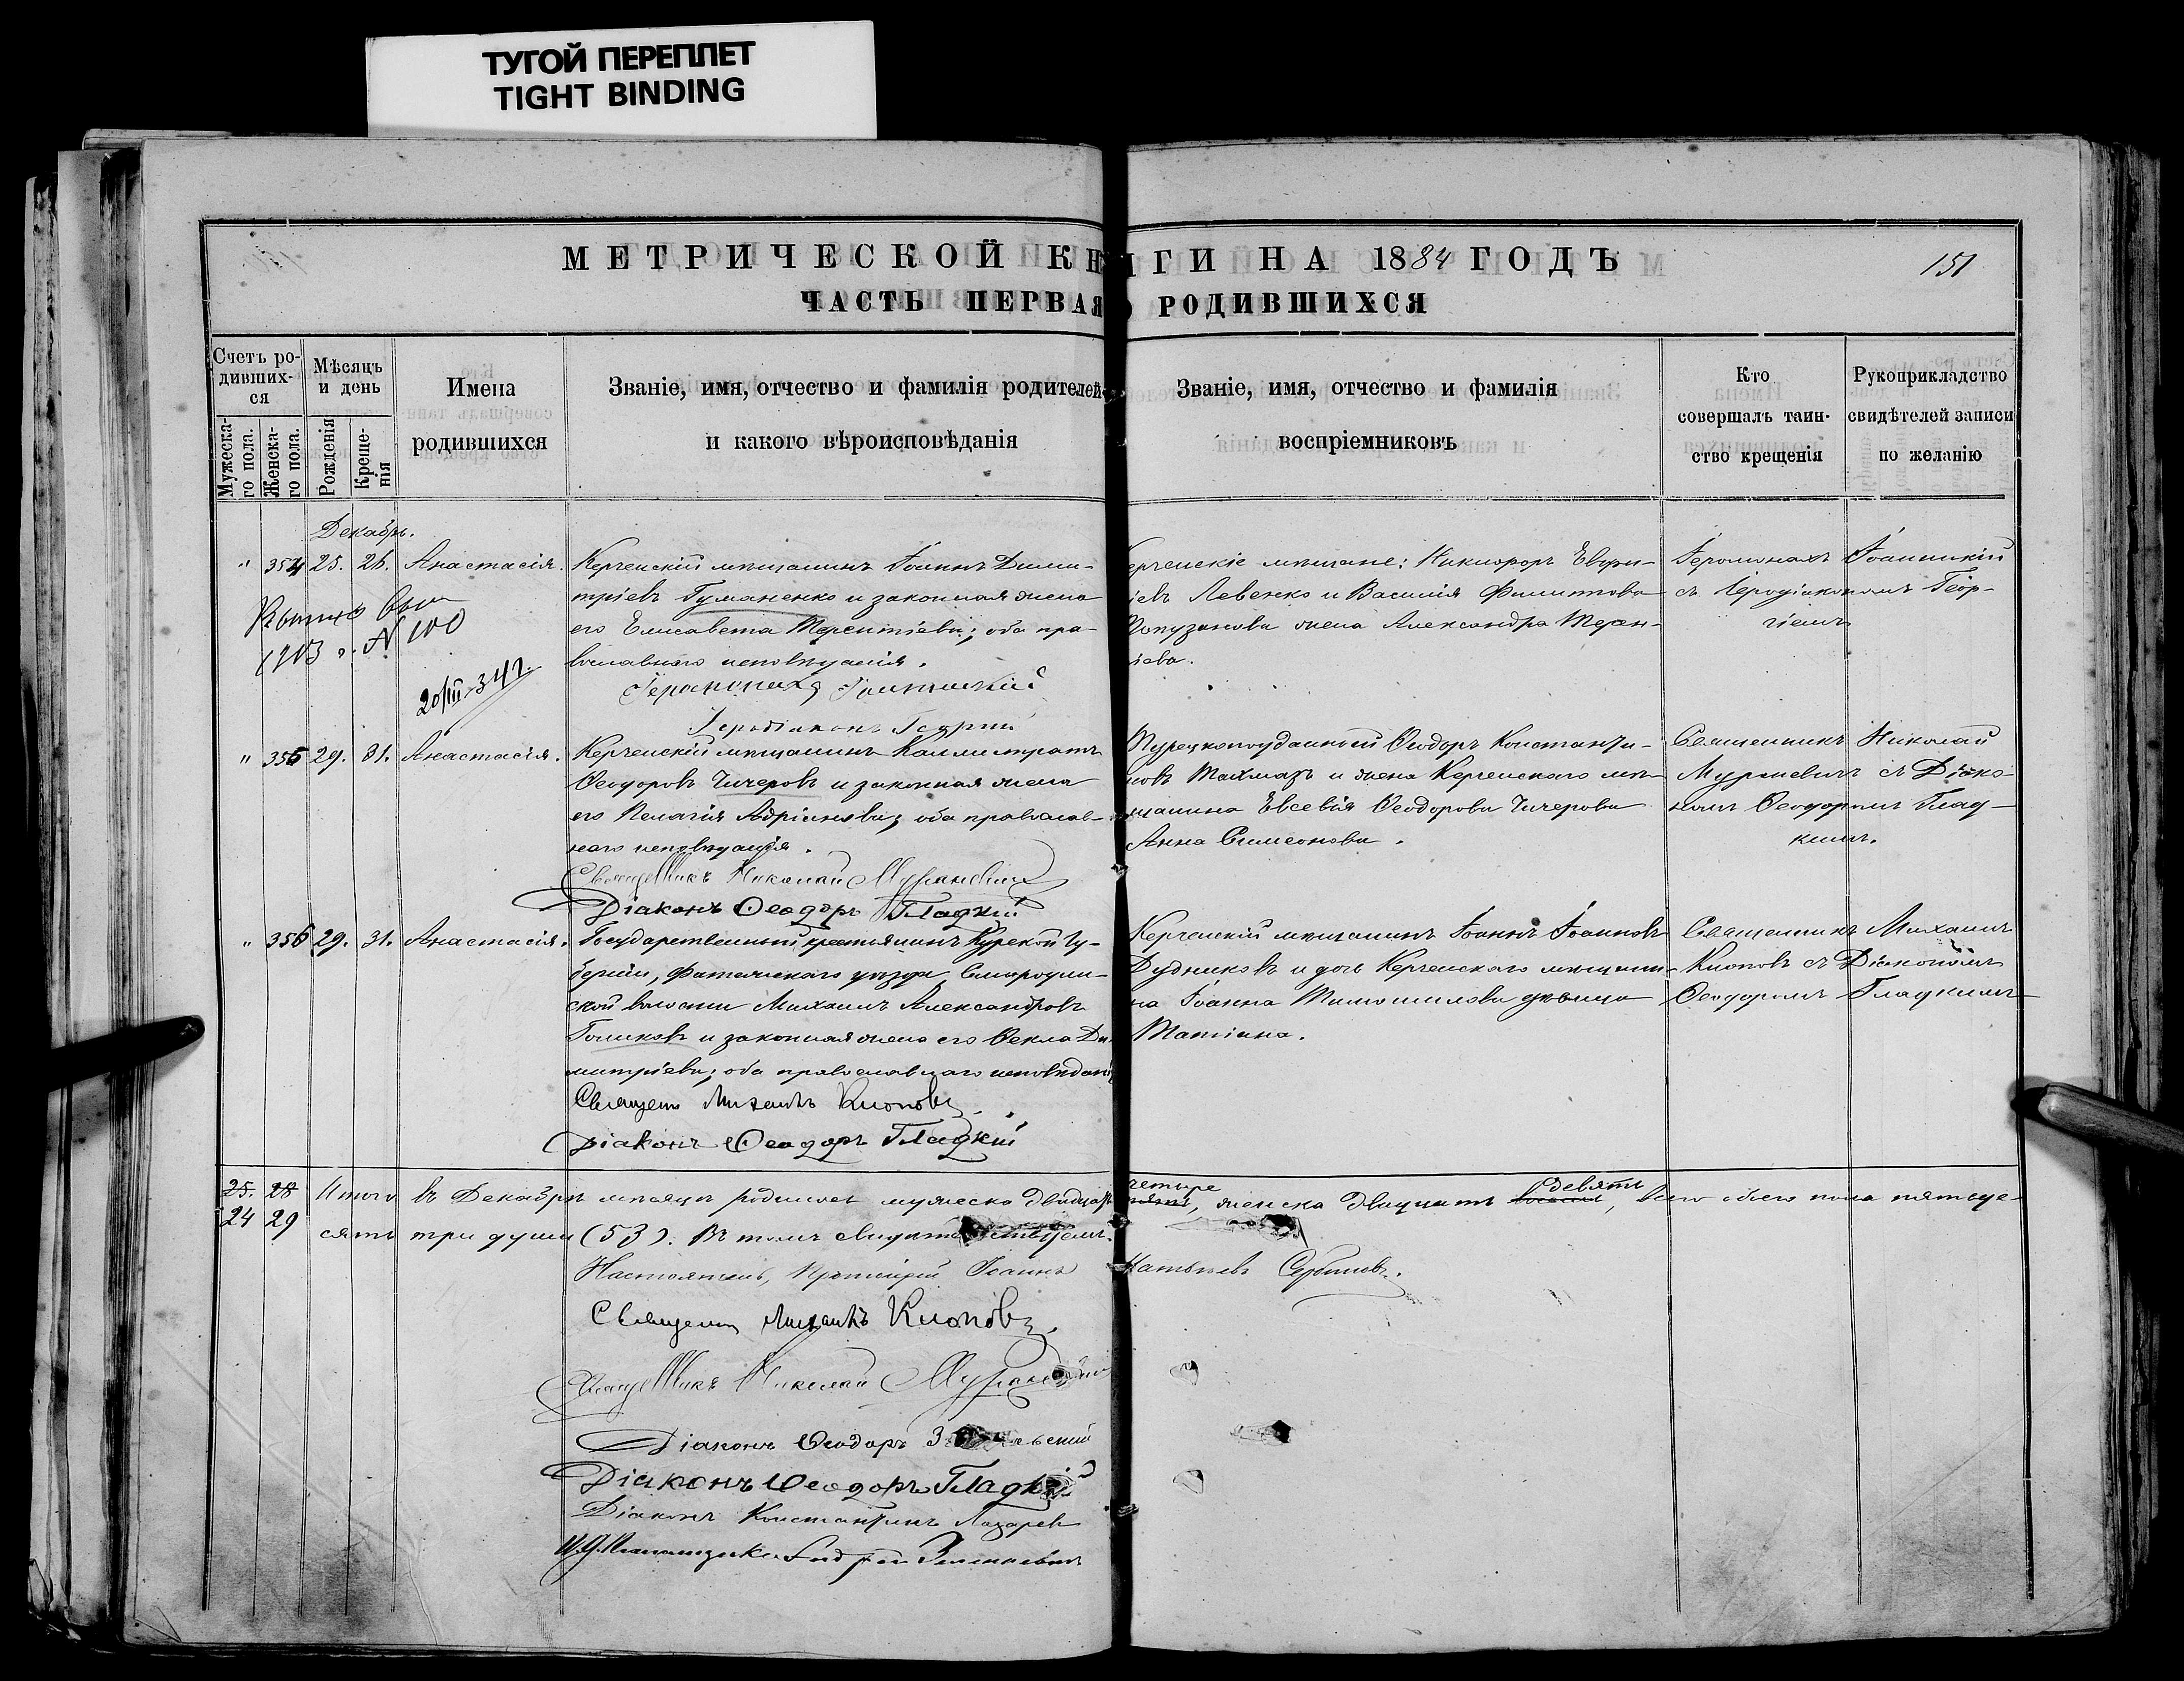 ТУГОЙ ПЕРЕПЛЕТ
TIGHT BINDING
МЕТРИЧЕСКОЙ КН
ИГИ НА 1884 ГОДЪ
151
ЧАСТЬ ПЕРВАЯ
О РОДИВШИХСЯ
Счетъ ро-
дивших-
ся
Мужеска-
го пола.
Женска-
го пола.
Мѣсяцъ
и день
Рожденія
Креще-
нія
Имена
родившихся
Званіе, имя, отчество и фамилія родителей
и какого вѣроисповѣданія
Званіе, имя, отчество и фамилія
воспріемниковъ
Кто
совершалъ таин-
ство крещенія
Рукоприкладство
свидѣтелей записи
по желанію
Декабрь.
" 354 25. 26. Анастасія.
Керченскій мѣщанинъ Іоаннъ Дими-
тріевъ Гуманенко и законная жена
его Елисавета Терентіева; оба пра-
вославнаго исповѣданія.
Іеромонахъ Іоанникій
Іеродіаконъ Георгій
1903 г. № 100
20/III-34 г.
ерченскіе мѣщане: Никифоръ Евфи-
іевъ Левенко и Василія Филиппова
жена Александра Терен-
іева.
Іеромонахъ Іоанникій
съ Іеродіакономъ Геор-
гіемъ
" 355 29. 31. Анастасія.
Керченскій мѣщанинъ Каллистратъ
Ѳеодоровъ Чичеровъ и законная жена
его Пелагія Адріанова; оба православ-
наго исповѣданія.
Священникъ Николай Мураневичъ
Діаконъ Ѳеодоръ Гладкій
Турецкоподданный Ѳеодоръ Константи-
новъ Тахмазъ и жена Керченскаго мѣ-
щанина Евсевія Ѳеодорова Чичерова
Анна Симеонова.
Священникъ Николай
Мураневичъ съ Діако-
номъ Ѳеодоромъ Глад-
кимъ.
" 356 29. 31. Анастасія.
Государственный крестьянинъ Курской гу-
берніи, Фатежскаго уѣзда, Смородин-
ской волости Михаилъ Александровъ
Голиковъ и законная жена его Ѳекла Ди-
митріева; оба православнаго исповѣдані
Священ Михаилъ Клоповъ
Діаконъ Ѳеодоръ Гладкій
Керченскій мѣщанинъ Іоаннъ Іоанновъ
Дудниковъ и дочь Керченскаго мѣщани-
на Іоанна Тимошилова дѣвица
Татіана.
Священникъ Михаилъ
Клоповъ съ Діакономъ
Ѳеодоромъ Гладкимъ
25. 28 Итого въ Декабрѣ мѣсяцѣ родилось мужеска двадцать
четыре
пять, женска двадцать восемь девять, всего обоего пола пятьде-
24 29 сятъ три души (53). Въ томъ свидѣтельствуемъ:
Настоятель, Протоіерей Іоаннъ
Матвѣевъ Сербиновъ.
Священ Михаилъ Клоповъ.
Священникъ Николай Мураневичъ
Діаконъ Ѳеодоръ
Діаконъ Ѳеодоръ Гладкій
Діаконъ Константинъ Лазарев
И. Д. Псаломщика Андрей